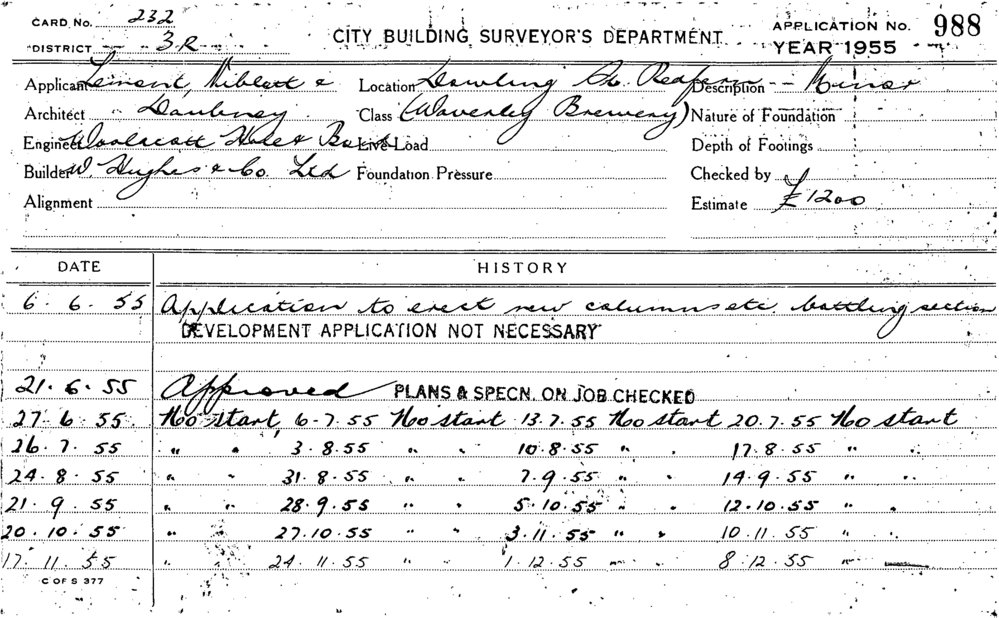 CARD No. 232
DISTRICT 3R
CITY BUILDING SURVEYOR'S DEPARTMENT
APPLICATION No. 988
YEAR 1955
Applicant Lemont, Niblett & Location Dowling St. Redfern Description Minor
Architect Daubney Class (Waverley Brewery) Nature of Foundation
Engineer Woolacott Hale & Live Load Depth of Footings
Builder W. Hughes & Co. Ltd Foundation Pressure Checked by
Alignment Estimate £1200
DATE HISTORY
6.6.55 Application to erect new columns etc. bottling section
DEVELOPMENT APPLICATION NOT NECESSARY
21.6.55 Approved PLANS & SPECN. ON JOB CHECKED
27.6.55 No start 6-7.55 No start 13.7.55 No start 20.7.55 No start
26.7.55 " " 3.8.55 " " 10.8.55 " " 17.8.55 " "
24.8.55 " " 31.8.55 " " 7.9.55 " " 14.9.55 " "
21.9.55 " " 28.9.55 " " 5.10.55 " " 12.10.55 " "
20.10.55 " " 27.10.55 " " 3.11.55 " " 10.11.55 " "
17.11.55 " " 24.11.55 " " 1.12.55 " " 8.12.55 "
C OF S 377